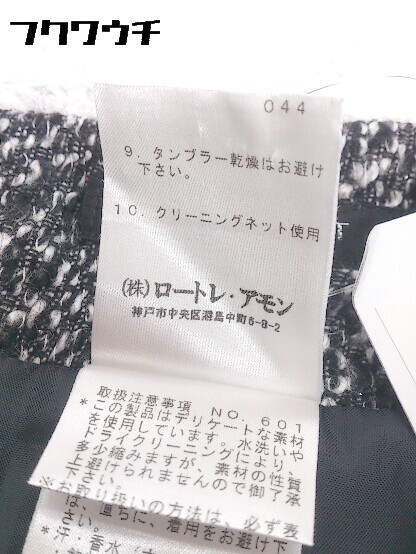 フクワウチ
044
9. タンブラー乾燥はお避け
下さい。
10. クリーニングネット使用
(株)ロートレ・アモン
神戸市中央区港島中町6-8-2
取扱注意事項 NO. 601
*この製品はデリケートな素材
を使用しています。水洗いや
ドライクリーニングにより、
多少縮みますが、素材の性質
上避けられませんので御了承
下さい。
※お取り扱いの方法は、必ず表
は、直ちに、着用をお避け下
*汗・香水